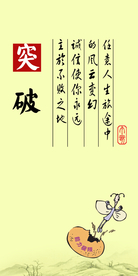 突破
任意人生旅途中
的风云变幻
诚信使你永远
立於不败之地